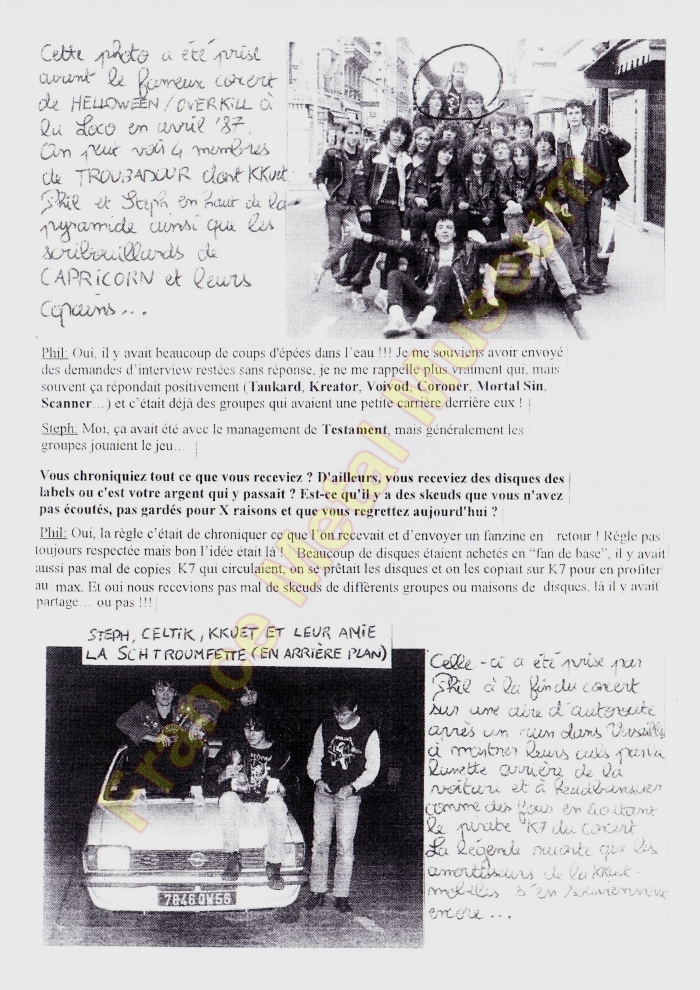 Cette photo a été prise
avant le fameux concert
de HELLOWEEN/OVERKILL à
la Loco en avril '87.
On peut voir 4 membres
de TROUBADOUR dont KKuet
Phil et Steph en haut de la
pyramide ainsi que les
scribouillards de
CAPRICORN et leurs
copains...
Phil: Oui, il y avait beaucoup de coups d'épées dans l'eau !!! Je me souviens avoir envoyé
des demandes d'interview restées sans réponse, je ne me rappelle plus vraiment qui, mais
souvent ça répondait positivement (Tankard, Kreator, Voivod, Coroner, Mortal Sin,
Scanner...) et c'était déjà des groupes qui avaient une petite carrière derrière eux !
Steph: Moi, ça avait été avec le management de Testament, mais généralement les
groupes jouaient le jeu...
Vous chroniquiez tout ce que vous receviez ? D'ailleurs, vous receviez des disques des
labels ou c'est votre argent qui y passait ? Est-ce qu'il y a des skeuds que vous n'avez
pas écoutés, pas gardés pour X raisons et que vous regrettez aujourd'hui ?
Phil: Oui, la règle c'était de chroniquer ce que l'on recevait et d'envoyer un fanzine en retour ! Règle pas
toujours respectée mais bon l'idée était là ! Beaucoup de disques étaient achetés en "fan de base", il y avait
aussi pas mal de copies K7 qui circulaient, on se prêtait les disques et on les copiait sur K7 pour en profiter
au max. Et oui nous recevions pas mal de skeuds de différents groupes ou maisons de disques, là il y avait
partage... ou pas !!!
STEPH, CELTIK, KKUET ET LEUR AMIE
LA SCHTROUMFETTE (EN ARRIÈRE PLAN)
7846 QW 56
Celle-ci a été prise par
Phil à la fin du concert
sur une aire d'autoroute
après un run dans Versailles
à montrer leurs culs par la
lunette arrière de la
voiture et à headbanguer
comme des fous en écoutant
le pirate K7 du concert
La légende raconte que les
amortisseurs de la KKuet-
mobiles s'en souviennent
encore...
France Metal Museum